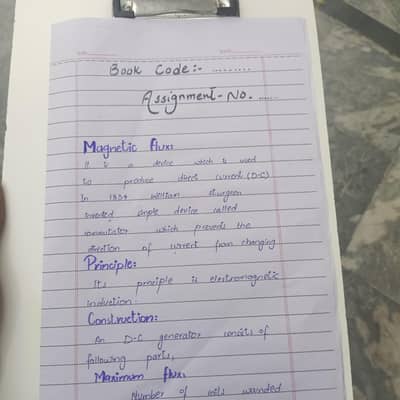 Book Code:- .........
Assignment-No. ......
Magnetic flux:
It is a device which is used
to produce direct current (D-C)
In 1834 william sturgeon
invented simple device called
commutator which prevents the
direction of current from changing
Principle:
Its principle is electromagnetic
induction.
Construction:
An D-C generator consists of
following parts,
Maximum flux:
Number of coils wounded